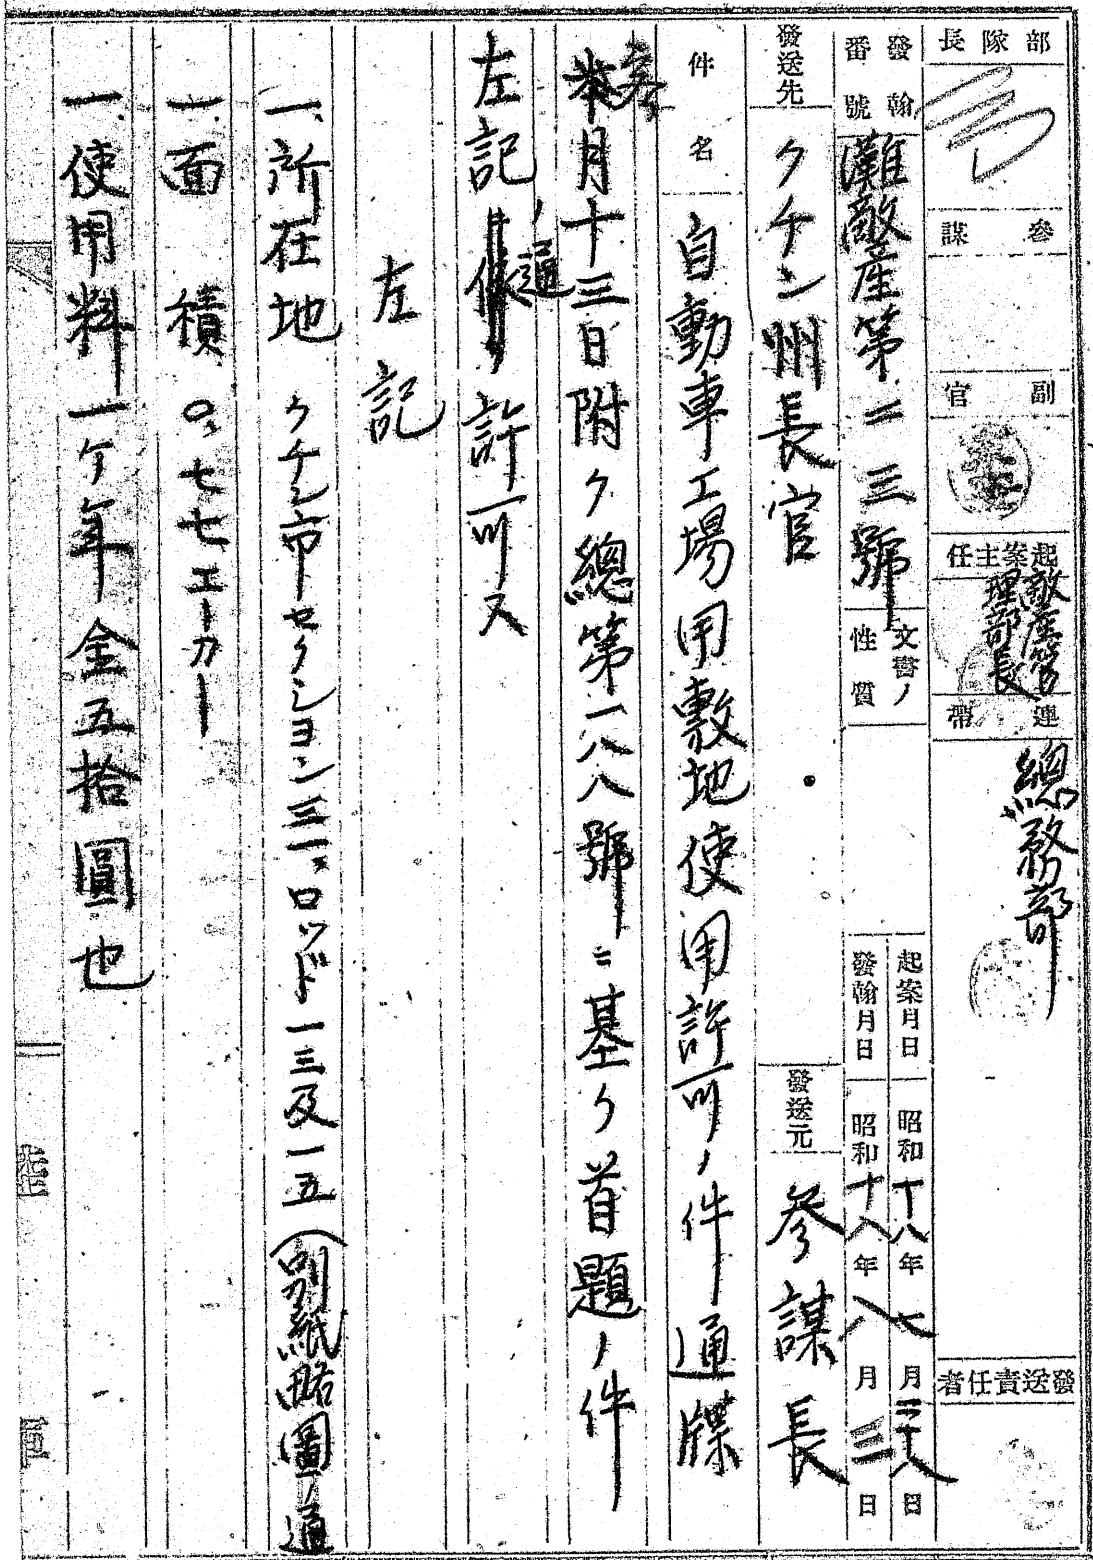 部隊長
參謀
副官
起案主任
敵産管理部長
連帶
總務部
發送責任者
發翰番號
灘敵産第二三號
文書ノ性質
起案月日 昭和十八年七月二十八日
發翰月日 昭和十八年八月三日
發送先
クチン州長官
發送元
參謀長
件名
自動車工場用敷地使用許可ノ件通牒
客月十三日附ク總第一八八號ニ基ク首題ノ件
左記ノ通許可ス
左記
一、所在地 クチン市セクション三一、ロッド一三及一五(別紙略圖ノ通
一、面積 〇、七七エーカー
一、使用料 一ケ年金五拾圓也